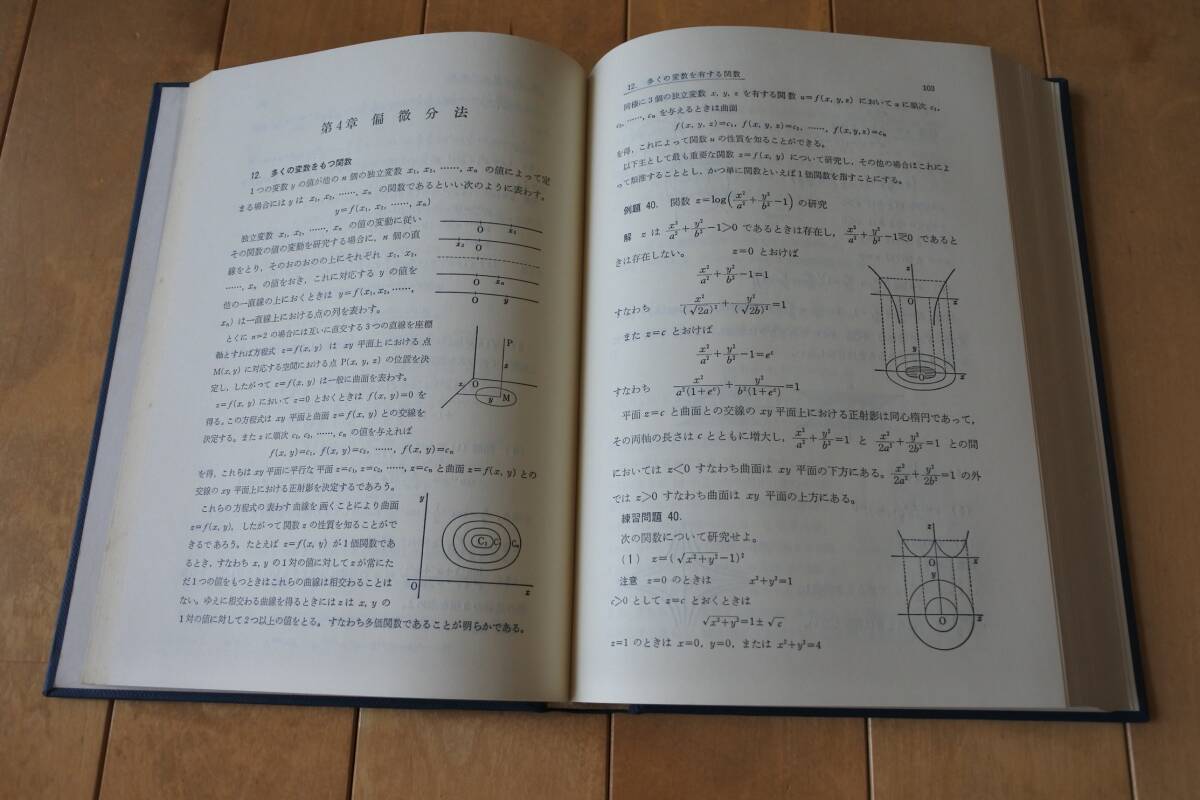 第4章 偏微分法
12. 多くの変数をもつ関数
1つの変数 y の値が他の n 個の独立変数 x₁, x₂, ……, xₙ の値によって定
まる場合には y は x₁, x₂, ……, xₙ の関数であるといい次のように表わす。
y=f(x₁, x₂, ……, xₙ)
独立変数 x₁, x₂, ……, xₙ の値の変動に従い
その関数の値の変動を研究する場合に, n 個の直
線をとり, そのおのおのの上にそれぞれ x₁, x₂,
……, xₙ の値をおき, これに対応する y の値を
他の一直線の上におくときは y=f(x₁, x₂, ……,
xₙ) は一直線上における点の列を表わす。
O x₁
x₂ O
O xₙ
O y
とくに n=2 の場合には互いに直交する3つの直線を座標
軸とすれば方程式 z=f(x, y) は xy 平面上における点
M(x, y) に対応する空間における点 P(x, y, z) の位置を決
定し, したがって z=f(x, y) は一般に曲面を表わす。
z=f(x, y) において z=0 とおくときは f(x, y)=0 を
得る。この方程式は xy 平面と曲面 z=f(x, y) との交線を
決定する。また z に順次 c₁, c₂, ……, cₙ の値を与えれば
P
z
O
x
y M
f(x, y)=c₁, f(x, y)=c₂, ……, f(x, y)=cₙ
を得, これらは xy 平面に平行な平面 z=c₁, z=c₂, ……, z=cₙ と曲面 z=f(x, y) との
交線の xy 平面上における正射影を決定するであろう。
これらの方程式の表わす曲線を画くことにより曲面
z=f(x, y), したがって関数 z の性質を知ることがで
きるであろう。たとえば z=f(x, y) が1価関数であ
るとき, すなわち x, y の1対の値に対して z が常にた
だ1つの値をもつときはこれらの曲線は相交わることは
ない。ゆえに相交わる曲線を得るときには z は x, y の
1対の値に対して2つ以上の値をとる。すなわち多価関数であることが明らかである。
y
O
x
12. 多くの変数を有する関数 103
同様に3個の独立変数 x, y, z を有する関数 u=f(x, y, z) において u に順次 c₁,
c₂, ……, cₙ を与えるときは曲面
f(x, y, z)=c₁, f(x, y, z)=c₂, ……, f(x, y, z)=cₙ
を得, これによって関数 u の性質を知ることができる。
以下主として最も重要な関数 z=f(x, y) について研究し, その他の場合はこれによ
って類推することとし, かつ単に関数といえば1価関数を指すことにする。
例題 40. 関数 z=log(x²/a²+y²/b²−1) の研究
解 z は x²/a²+y²/b²−1>0 であるときは存在し, x²/a²+y²/b²−1≦0 であると
きは存在しない。 z=0 とおけば
x²/a²+y²/b²−1=1
すなわち x²/(√2a)²+y²/(√2b)²=1
また z=c とおけば
x²/a²+y²/b²−1=eᶜ
すなわち x²/a²(1+eᶜ)+y²/b²(1+eᶜ)=1
z
O x
y
O x
平面 z=c と曲面との交線の xy 平面上における正射影は同心楕円であって,
その両軸の長さは c とともに増大し, x²/a²+y²/b²=1 と x²/2a²+y²/2b²=1 との間
においては z<0 すなわち曲面は xy 平面の下方にある。x²/2a²+y²/2b²=1 の外
では z>0 すなわち曲面は xy 平面の上方にある。
練習問題 40.
次の関数について研究せよ。
(1) z=(√x²+y²−1)²
注意 z=0 のときは x²+y²=1
c>0 として z=c とおくときは
√x²+y²=1±√c
z=1 のときは x=0, y=0, または x²+y²=4
z
x
y
O x